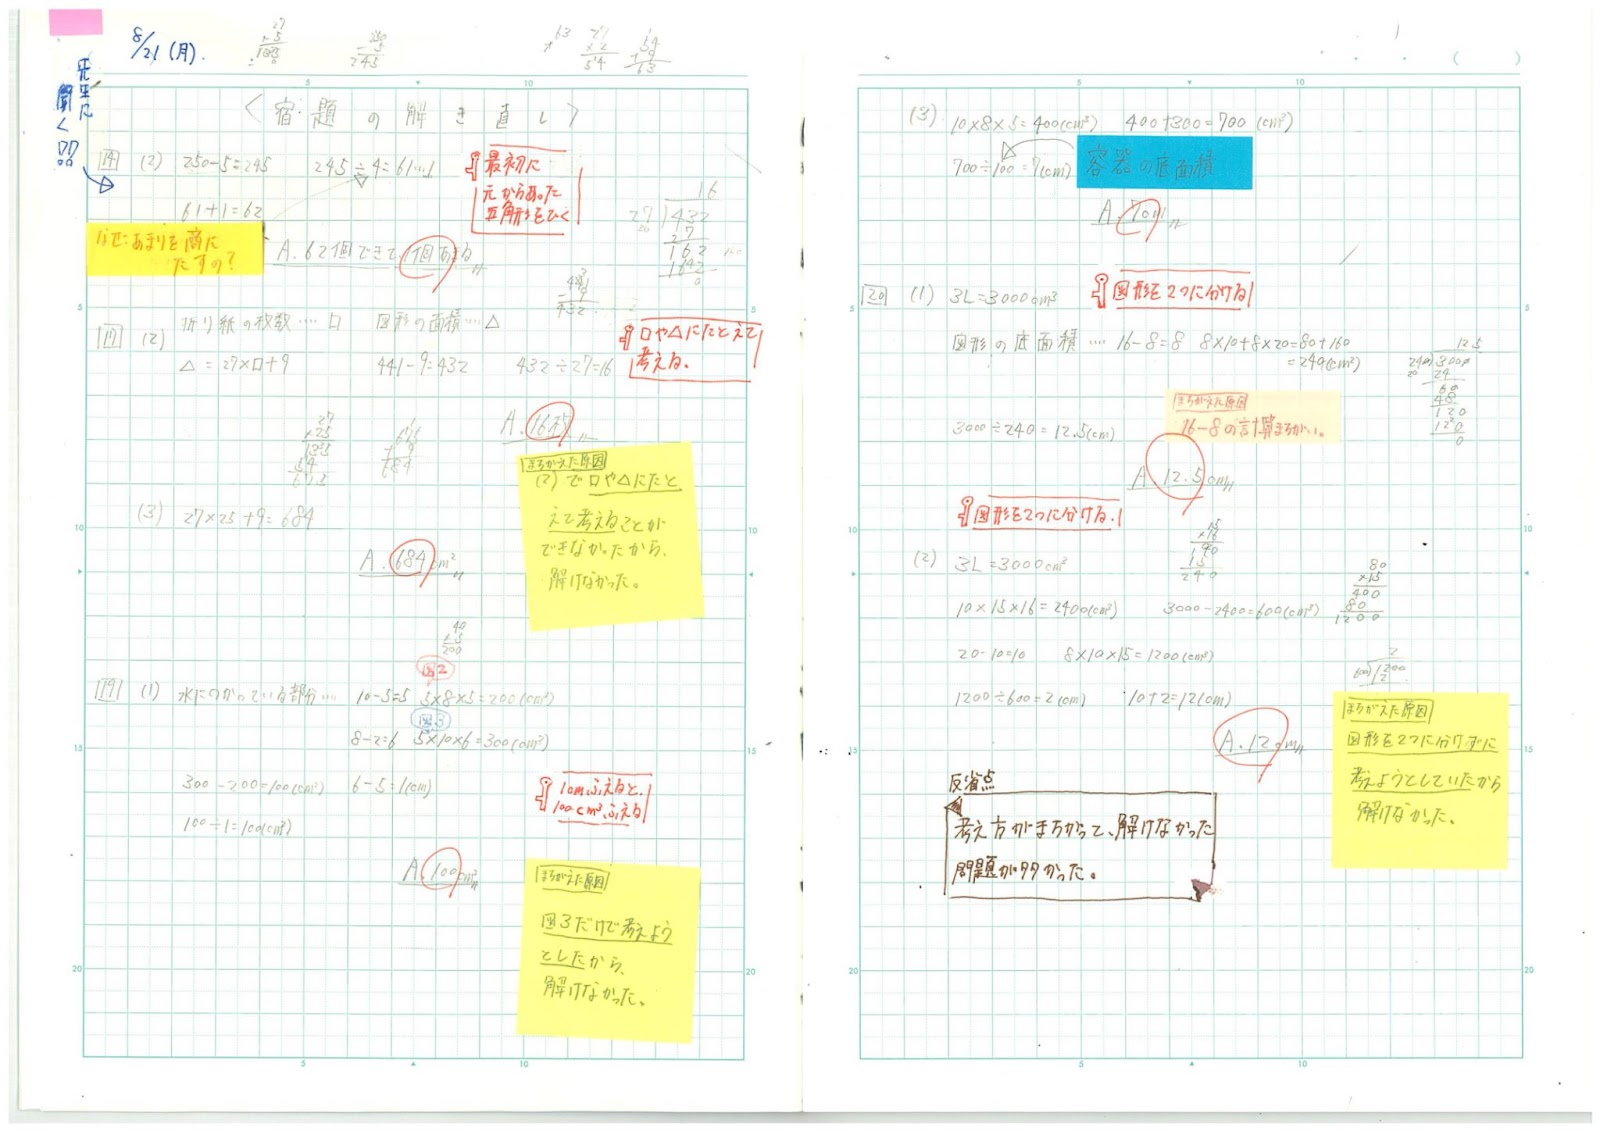 8/21(月).
先生に
聞く!!
〈宿題の解き直し〉
14 (2) 250-5=245 245÷4=61…1
61+1=62
A. 62個できて1個あまる
最初に
元からあった
正角形をひく
なぜ:あまりを商に
たすの?
17 (2) 折り紙の枚数……□ 図形の面積……△
△=27×□+9 441-9=432 432÷27=16
□や△にたとえて
考える。
A. 16枚
まちがえた原因
(2)で□や△にたと
えて考えることが
できなかったから、
解けなかった。
(3) 27×25+9=684
A. 684cm²
19 (1) 水につかっている部分…… 10-5=5 5×8×5=200(cm³)
図2
図3
8-2=6 5×10×6=300(cm³)
300-200=100(cm³) 6-5=1(cm)
100÷1=100(cm²)
1cmふえると、
100cm³ふえる
A. 100cm²
まちがえた原因
図3だけで考えよう
としたから、
解けなかった。
(3) 10×8×5=400(cm³) 400+300=700(cm³)
700÷100=7(cm)
容器の底面積
A. 7cm
20 (1) 3L=3000cm³
図形を2つに分ける
図形の底面積…… 16-8=8 8×10+8×20=80+160
=240(cm²)
まちがえた原因
16-8の計算まちがい。
3000÷240=12.5(cm)
A. 12.5cm
図形を2つに分ける.
(2) 3L=3000cm³
10×15×16=2400(cm³) 3000-2400=600(cm³)
20-10=10 8×10×15=1200(cm³)
1200÷600=2(cm) 10+2=12(cm)
A. 12cm
まちがえた原因
図形を2つに分けずに
考えようとしていたから
解けなかった。
反省点
考え方がまちがって、解けなかった
問題が多かった。